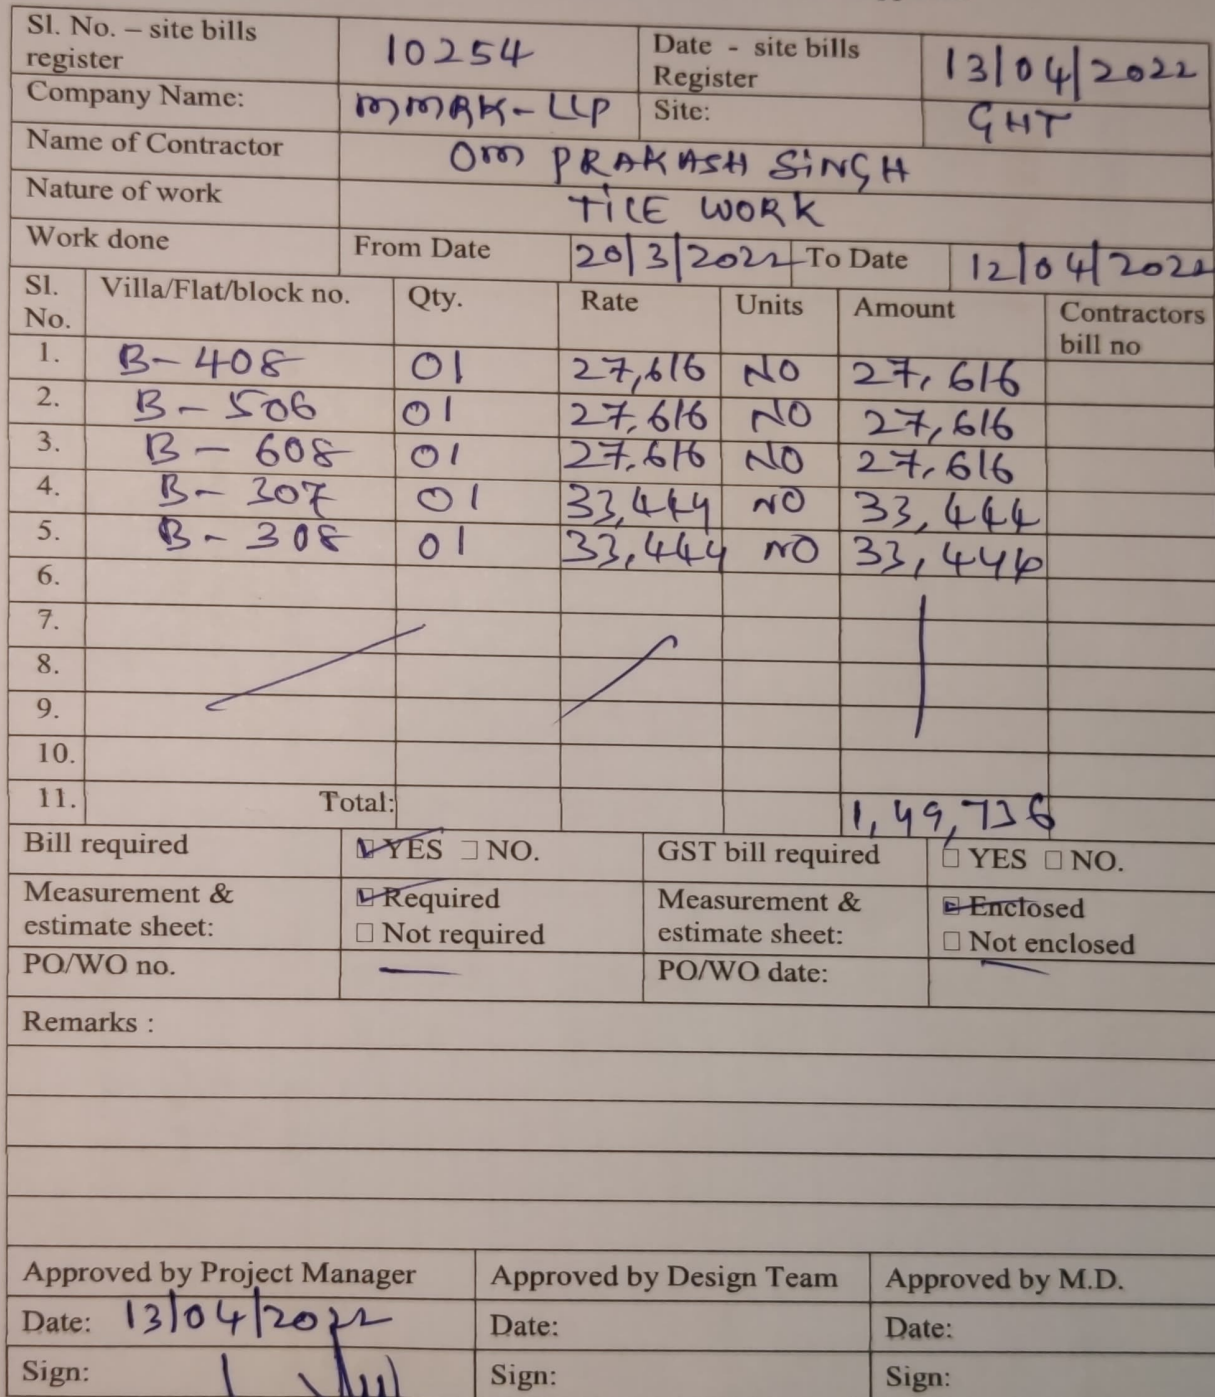 Sl. No. – site bills register 10254 Date - site bills Register 13/04/2022
Company Name: MMRK-LLP Site: GHT
Name of Contractor OM PRAKASH SiNGH
Nature of work TiLE WORK
Work done From Date 20/3/2022 To Date 12/04/2022
Sl. No. Villa/Flat/block no. Qty. Rate Units Amount Contractors bill no
1. B-408 01 27,616 NO 27,616
2. B-506 01 27,616 NO 27,616
3. B-608 01 27,616 NO 27,616
4. B-307 01 33,444 NO 33,444
5. B-308 01 33,444 NO 33,444
6.
7.
8.
9.
10.
11. Total: 1,49,736
Bill required ☑ YES ☐ NO. GST bill required ☐ YES ☐ NO.
Measurement & estimate sheet: ☑ Required ☐ Not required Measurement & estimate sheet: ☑ Enclosed ☐ Not enclosed
PO/WO no. — PO/WO date: —
Remarks :
Approved by Project Manager Approved by Design Team Approved by M.D.
Date: 13/04/2022 Date: Date:
Sign: Sign: Sign: